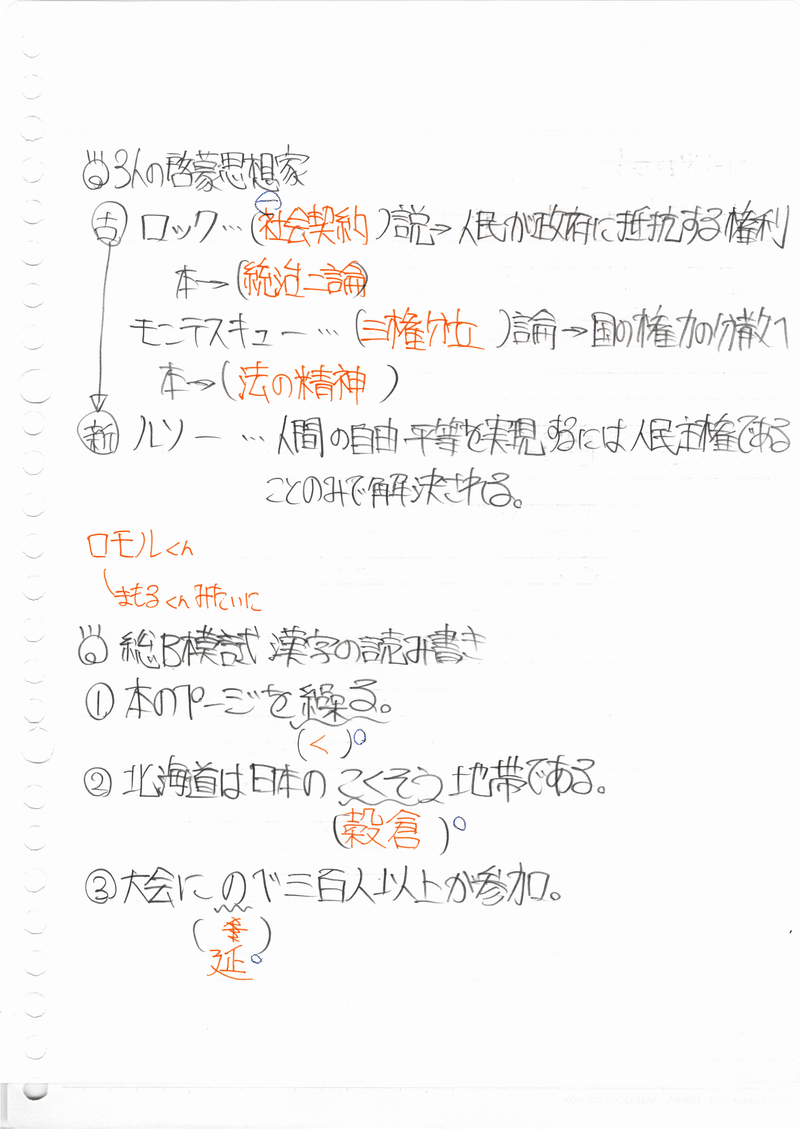 3人の啓蒙思想家
古 ロック…(社会契約)説→人民が政府に抵抗する権利
本→(統治二論)
モンテスキュー…(三権分立)論→国の権力の分散へ
本→(法の精神)
新 ルソー…人間の自由平等を実現するには人民主権である
ことのみで解決される。
ロモルくん
まもるくんみたいに
総B模試 漢字の読み書き
① 本のページを繰る。
(く)
② 北海道は日本のこくそう地帯である。
(穀倉)
③ 大会にのべ三百人以上が参加。
( )
延